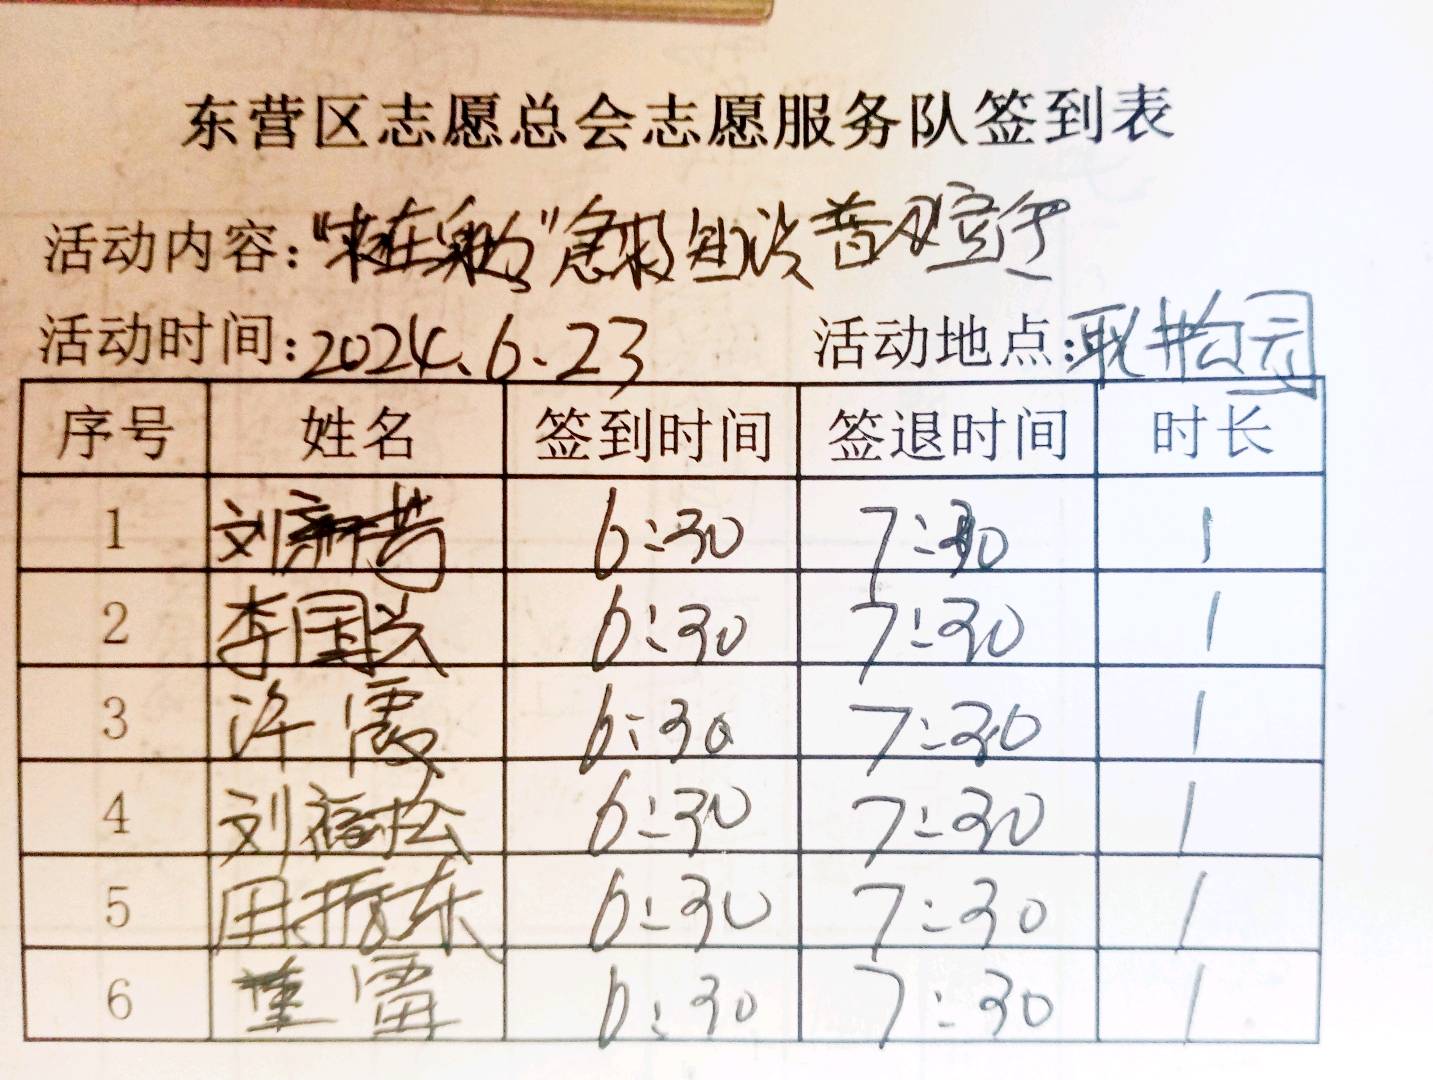 东营区志愿总会志愿服务队签到表
活动内容："救在身边"急救知识普及宣传
活动时间：2024.6.23 活动地点：耿井公园
序号 姓名 签到时间 签退时间 时长
1 刘新芳 6:30 7:30 1
2 李国兴 6:30 7:30 1
3 许霞 6:30 7:30 1
4 刘福松 6:30 7:30 1
5 田振东 6:30 7:30 1
6 董霄 6:30 7:30 1